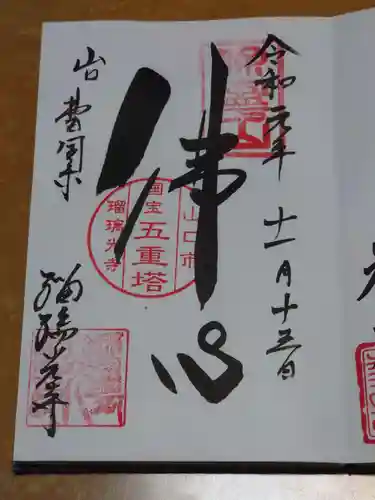 令和元年 十一月十三日
佛心
山口市
国宝
五重塔
瑠璃光寺
山口
瑠璃光寺